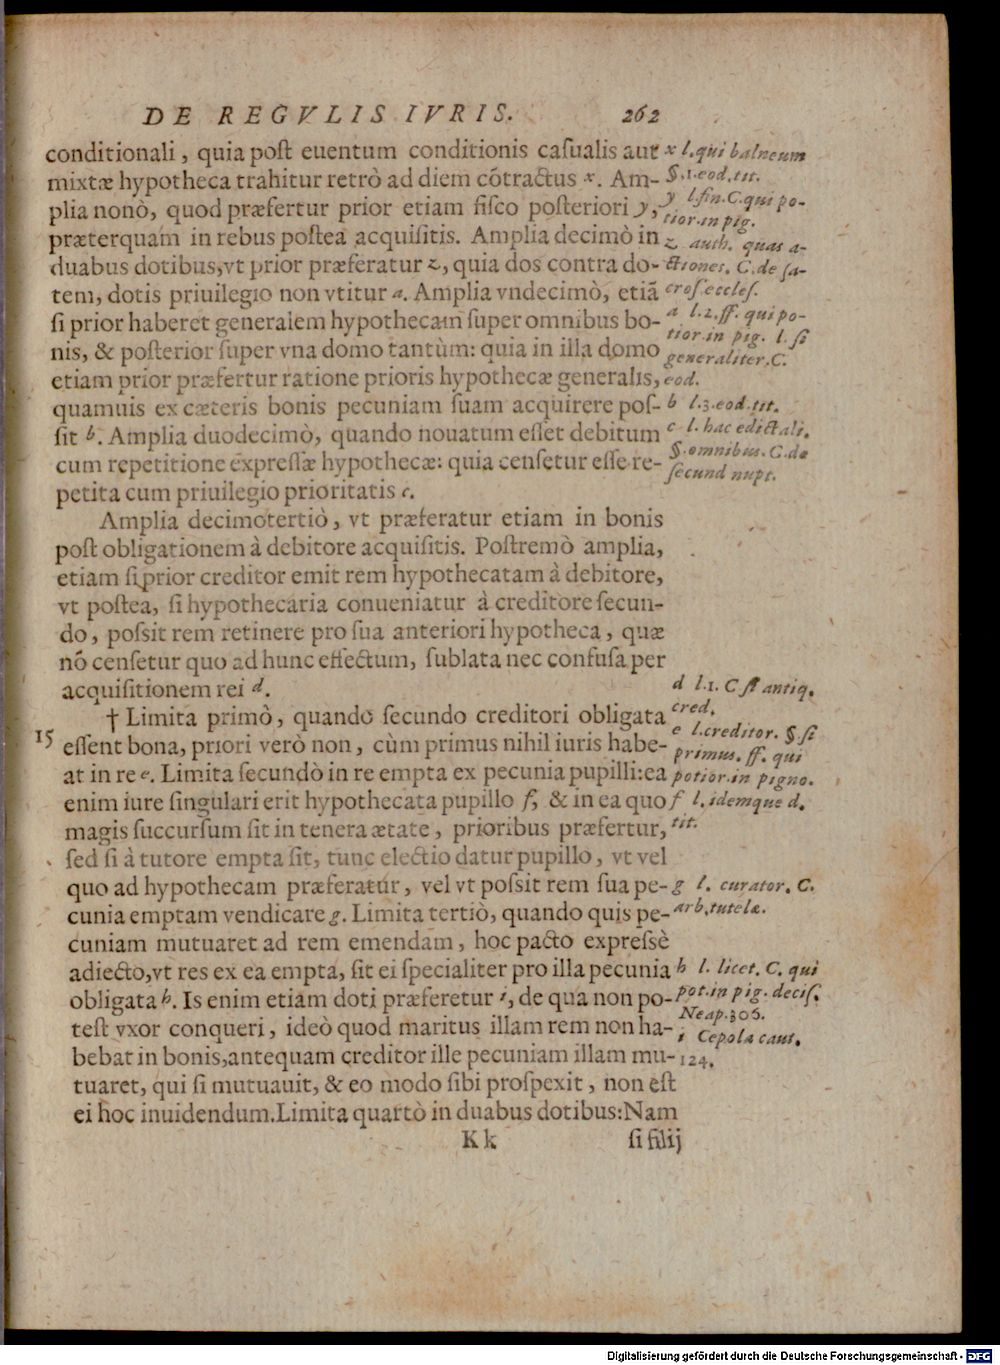 DE REGVLIS IVRIS. 262
conditionali, quia post euentum conditionis casualis aut
mixtæ hypotheca trahitur retrò ad diem cõtractus x. Am-
plia nonò, quod præfertur prior etiam fisco posteriori y,
præterquam in rebus postea acquisitis. Amplia decimò in
duabus dotibus,vt prior præferatur z, quia dos contra do-
tem, dotis priuilegio non vtitur a. Amplia vndecimò, etiã
si prior haberet generalem hypothecam super omnibus bo-
nis, & posterior super vna domo tantùm: quia in illa domo
etiam prior præfertur ratione prioris hypothecæ generalis,
quamuis ex cæteris bonis pecuniam suam acquirere pos-
sit b. Amplia duodecimò, quando nouatum esset debitum
cum repetitione expressæ hypothecæ: quia censetur esse re-
petita cum priuilegio prioritatis c.
Amplia decimotertiò, vt præferatur etiam in bonis
post obligationem à debitore acquisitis. Postremò amplia,
etiam si prior creditor emit rem hypothecatam à debitore,
vt postea, si hypothecaria conueniatur à creditore secun-
do, possit rem retinere pro sua anteriori hypotheca, quæ
nõ censetur quo ad hunc effectum, sublata nec confusa per
acquisitionem rei d.
† Limita primò, quando secundo creditori obligata
15 essent bona, priori verò non, cùm primus nihil iuris habe-
at in re e. Limita secundò in re empta ex pecunia pupilli:ea
enim iure singulari erit hypothecata pupillo f, & in ea quo
magis succursum sit in tenera ætate, prioribus præfertur,
sed si à tutore empta sit, tunc electio datur pupillo, vt vel
quo ad hypothecam præferatur, vel vt possit rem sua pe-
cunia emptam vendicare g. Limita tertiò, quando quis pe-
cuniam mutuaret ad rem emendam, hoc pacto expressè
adiecto,vt res ex ea empta, sit ei specialiter pro illa pecunia
obligata h. Is enim etiam doti præferetur i, de qua non po-
test vxor conqueri, ideò quod maritus illam rem non ha-
bebat in bonis,antequam creditor ille pecuniam illam mu-
tuaret, qui si mutuauit, & eo modo sibi prospexit, non est
ei hoc inuidendum.Limita quartò in duabus dotibus:Nam
Kk si filij
x l. qui balneum
§.1.eod.tit.
y l.fin.C.qui po-
tior.in pig.
z auth. quas a-
ctiones. C. de sa-
cros.eccles.
a l.2.ff. qui po-
tior.in pig. l. si
generaliter.C.
eod.
b l.3.eod.tit.
c l. hac edictali.
§.omnibus.C.de
secund nupt.
d l.1. C si antiq.
cred.
e l.creditor. §.si
primus. ff. qui
potior.in pigno.
f l. idemque d.
tit.
g l. curator. C.
arb.tutelæ.
h l. licet. C. qui
pot.in pig.decis.
Neap.306.
i Cepola caut.
124.
Digitalisierung gefördert durch die Deutsche Forschungsgemeinschaft - DFG